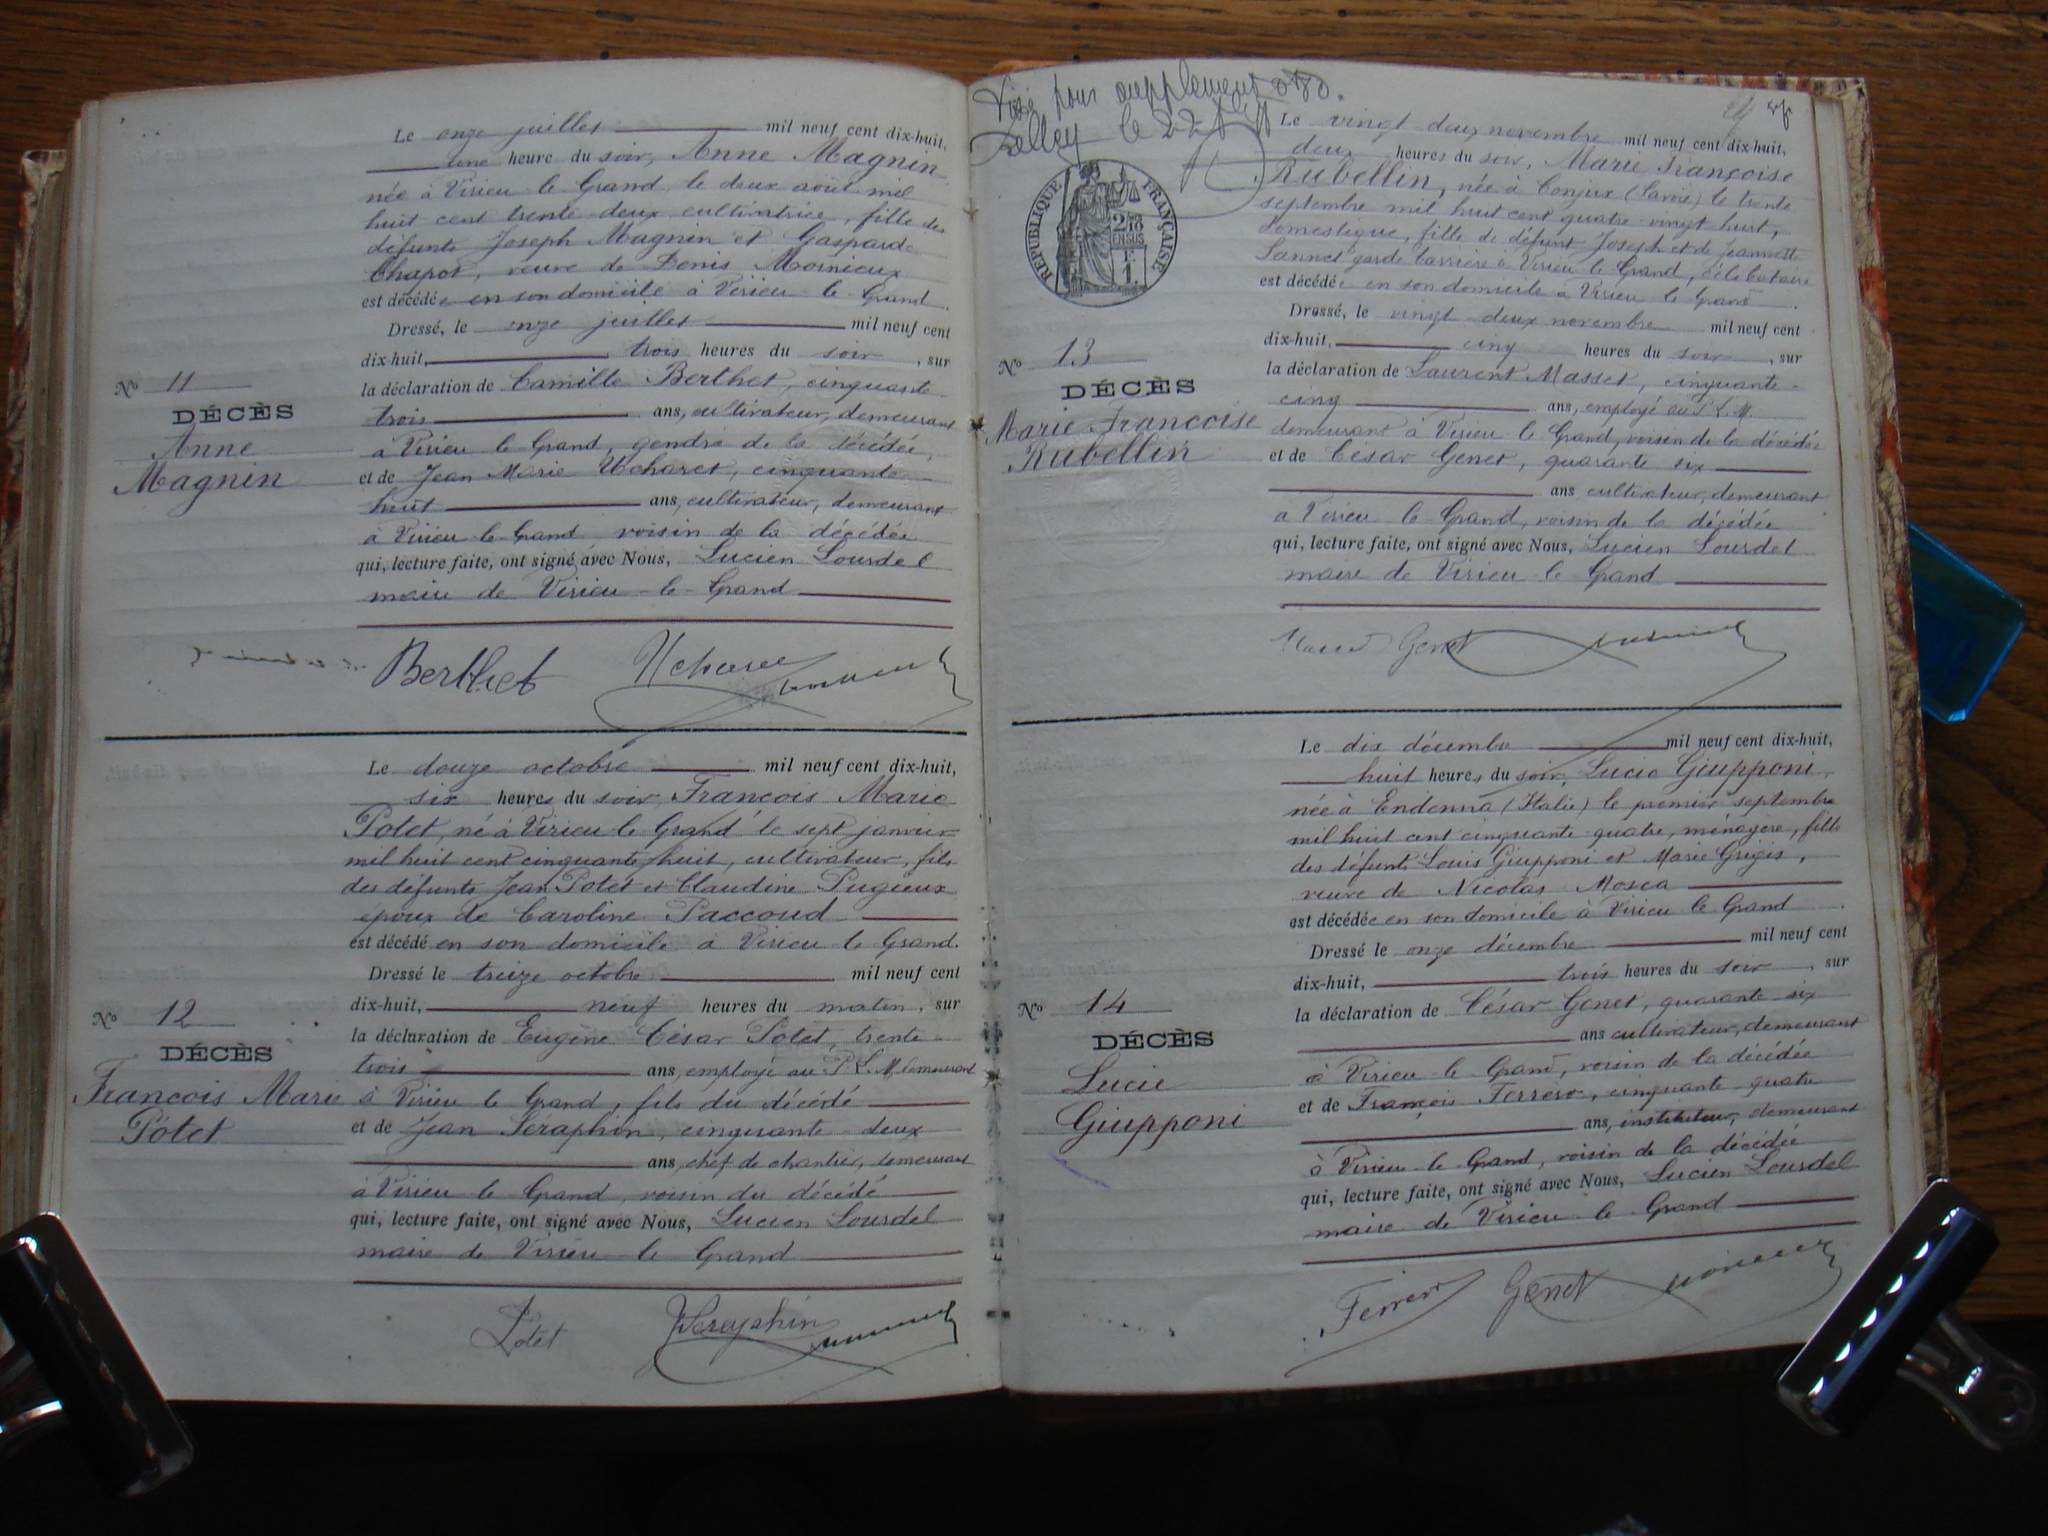 Le onze juillet mil neuf cent dix-huit,
une heure du soir, Anne Magnin
née à Virieu le Grand le deux août mil
huit cent trente deux cultivatrice, fille des
défunts Joseph Magnin et Gasparde
Chapot, veuve de Denis Moinieux
est décédée en son domicile à Virieu le Grand.
Dressé, le onze juillet mil neuf cent
dix-huit, trois heures du soir, sur
No 11
la déclaration de Camille Berthet, cinquante
DÉCÈS
trois ans, cultivateur, demeurant
Anne
à Virieu le Grand, gendre de la décédée,
Magnin
et de Jean Marie Ucharet, cinquante
huit ans, cultivateur, demeurant
à Virieu le Grand voisin de la décédée
qui, lecture faite, ont signé avec Nous, Lucien Lourdel
maire de Virieu-le-Grand
Berthet
Le douze octobre mil neuf cent dix-huit,
six heures du soir, François Marie
Potet, né à Virieu le Grand le sept janvier
mil huit cent cinquante huit, cultivateur, fils
des défunts Jean Potet et Claudine Pugieux
époux de Caroline Paccoud
est décédé en son domicile à Virieu le Grand.
Dressé le treize octobre mil neuf cent
dix-huit, neuf heures du matin, sur
No 12
la déclaration de Eugène César Potet, trente
DÉCÈS
trois ans, employé au P.L.M, demeurant
François Marie
à Virieu le Grand, fils du décédé
Potet
et de Jean Seraphin, cinquante deux
ans, chef de chantier, demeurant
à Virieu le Grand voisin du décédé
qui, lecture faite, ont signé avec Nous, Lucien Lourdel
maire de Virieu le Grand
Potet JSeraphin
Visé pour supplément
Belley le 22
RÉPUBLIQUE FRANÇAISE
2/10 EN SUS
1 F.
Le vingt deux novembre mil neuf cent dix-huit,
deux heures du soir, Marie Françoise
Rubellin, née à Conjux (Savoie) le trente
septembre mil huit cent quatre-vingt huit,
domestique, fille de défunt Joseph et de Jeannette
garde barrière à Virieu le Grand, célibataire
est décédée en son domicile à Virieu le Grand.
Dressé, le vingt-deux novembre mil neuf cent
dix-huit, cinq heures du soir, sur
No 13
la déclaration de Laurent Masset, cinquante-
DÉCÈS
cinq ans, employé au P.L.M.
Marie Françoise
demeurant à Virieu le Grand, voisin de la décédée
Rubellin
et de César Genet, quarante six
ans cultivateur, demeurant
à Virieu le Grand, voisin de la décédée
qui, lecture faite, ont signé avec Nous, Lucien Lourdel
maire de Virieu le Grand
Genet
Le dix décembre mil neuf cent dix-huit,
huit heures du soir, Lucie Giupponi,
née à Endenna (Italie) le premier septembre
mil huit cent cinquante quatre, ménagère, fille
des défunts Louis Giupponi et Marie Grigis,
veuve de Nicolas Mosca
est décédée en son domicile à Virieu le Grand.
Dressé le onze décembre mil neuf cent
dix-huit, trois heures du soir, sur
No 14
la déclaration de César Genet, quarante six
DÉCÈS
ans cultivateur, demeurant
Lucie
à Virieu le Grand, voisin de la décédée
Giupponi
et de François Ferrero, cinquante quatre
ans, instituteur, demeurant
à Virieu-le-Grand, voisin de la décédée
qui, lecture faite, ont signé avec Nous, Lucien Lourdel
maire de Virieu le Grand
Ferrero Genet